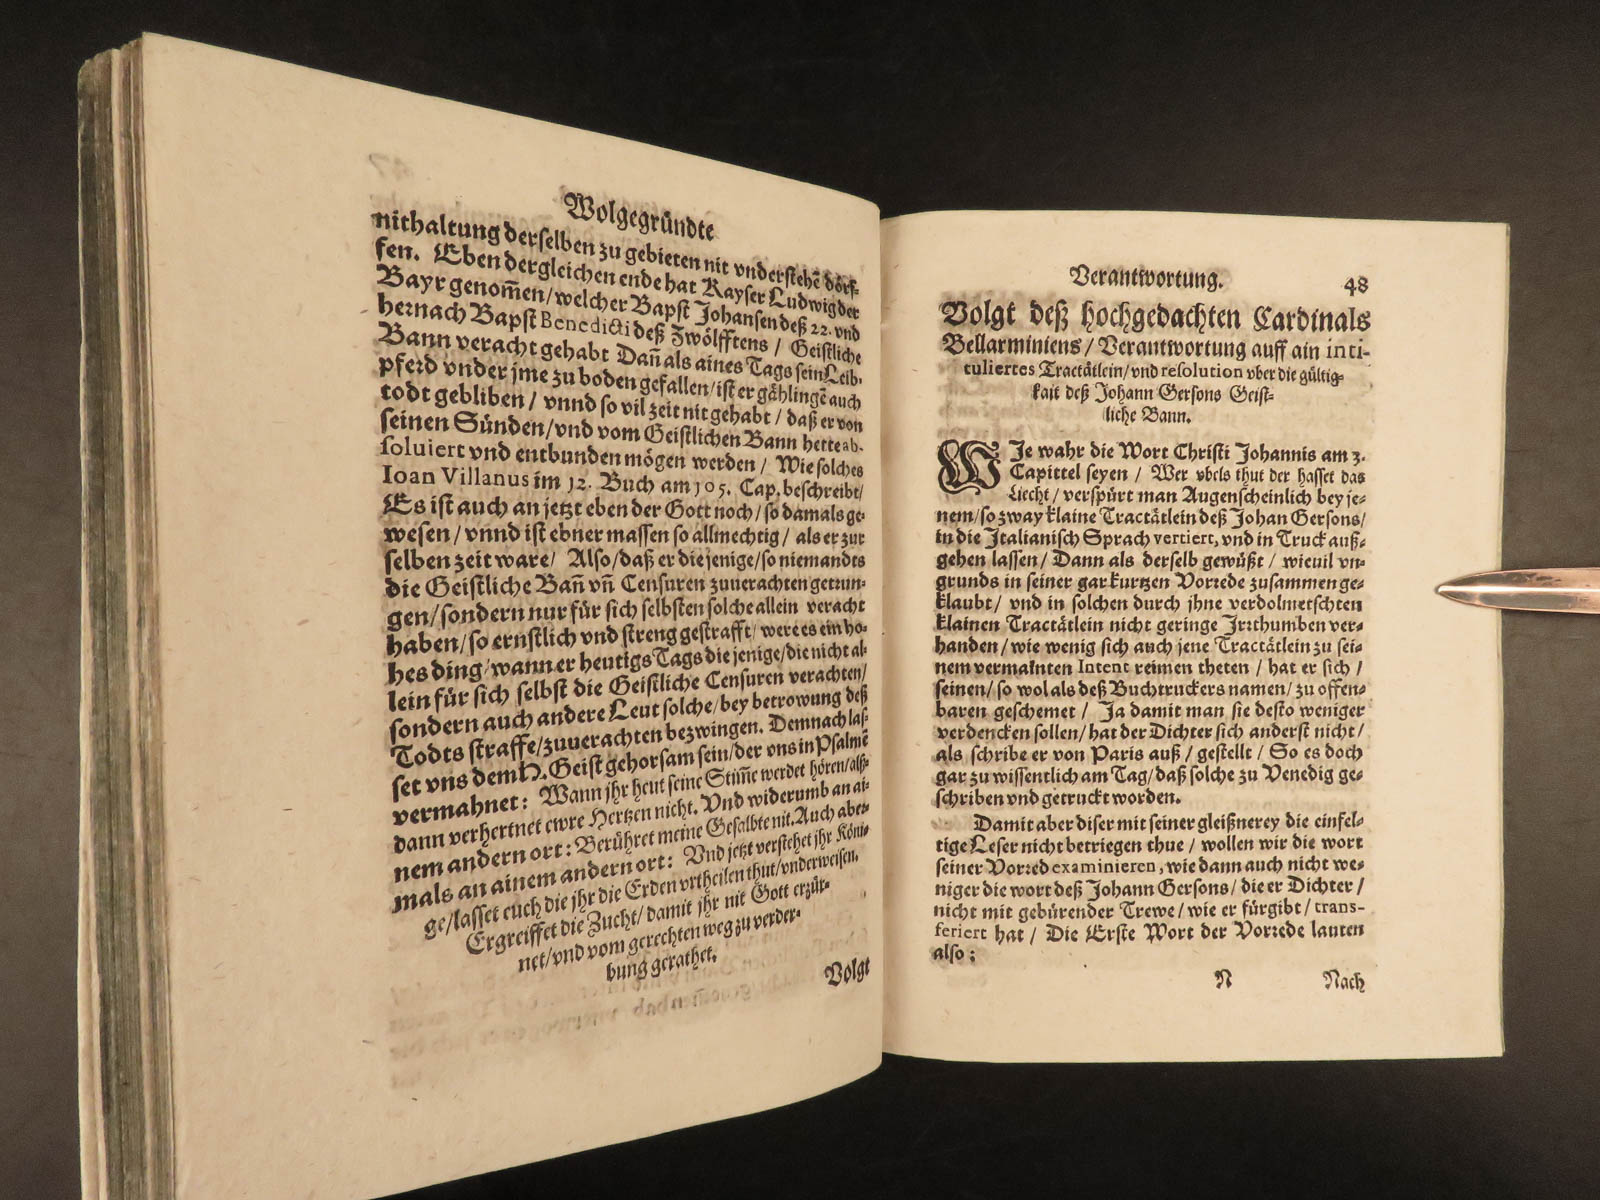 Wolgegründte
nithaltung derselben zu gebieten nit vnderstehē dörf-
fen. Eben dergleichen ende hat Kayser Ludwig der
Bayr genom̄en/welcher Bapst Johansen deß 22. vnd
hernach Bapst Benedicti deß Zwölfftens / Geistliche
Bann veracht gehabt Dañ als aines Tags sein Leib-
pferd vnder jme zu boden gefallen/ist er gählingē auch
todt gebliben / vnnd so vil zeit nit gehabt / daß er von
seinen Sünden/vnd vom Geistlichen Bann hette ab-
soluiert vnd entbunden mögen werden / Wie solches
Ioan Villanus im 12. Buch am 105. Cap. beschreibt/
Es ist auch an jetzt eben der Gott noch/so damals ge-
wesen / vnnd ist ebner massen so allmechtig / als er zur
selben zeit ware / Also/daß er die jenige/so niemandts
die Geistliche Bañ vñ Censuren zuuerachten getrun-
gen/sondern nur für sich selbsten solche allein veracht
haben/so ernstlich vnd streng gestrafft/ were es ein ho-
hes ding/wann er heutigs Tags die jenige/die nicht al-
lein für sich selbst die Geistliche Censuren verachten/
sondern auch andere Leut solche/bey betrowung deß
Todts straffe/zuuerachten bezwingen. Demnach las-
set vns dem H. Geist gehorsam sein/der vns in Psalmē
vermahnet: Wann jhr heut seine Stim̄e werdet hören/alß-
dann verhertnet ewre Hertzen nicht. Vnd widerumb an ai-
nem andern ort: Berühret meine Gesalbte nit. Auch aber-
mals an ainem andern ort: Vnd jetzt verstehet jhr Köni-
ge/lasset euch die jhr die Erden vrtheilen thut/vnderweisen.
Ergreiffet die Zucht/damit jhr nit Gott erzür-
net/vnd vom gerechten weg zu verder-
bung gerathet.
Volgt
Verantwortung. 48
Volgt deß hochgedachten Cardinals
Bellarminiens / Verantwortung auff ain inti-
tuliertes Tractätlein/vnd resolution vber die gültig-
kait deß Johann Gersons Geist-
liche Bann.
WJe wahr die Wort Christi Johannis am 3.
Capittel seyen / Wer vbels thut der hasset das
Liecht / verspürt man Augenscheinlich bey je-
nem/so zway klaine Tractätlein deß Johan Gersons/
in die Italianisch Sprach vertiert, vnd in Truck auß-
gehen lassen / Dann als derselb gewüßt / wieuil vn-
grunds in seiner gar kurtzen Vorrede zusammen ge-
klaubt / vnd in solchen durch jhne verdolmetschten
klainen Tractätlein nicht geringe Jrrthumben ver-
handen / wie wenig sich auch jene Tractätlein zu sei-
nem vermainten Intent reimen theten / hat er sich /
seinen/ so wol als deß Buchtruckers namen/ zu offen-
baren geschemet / Ja damit man sie desto weniger
verdencken sollen / hat der Dichter sich anderst nicht /
als schribe er von Paris auß / gestellt / So es doch
gar zu wissentlich am Tag/daß solche zu Venedig ge-
schriben vnd getruckt worden.
Damit aber diser mit seiner gleißnerey die einfel-
tige Leser nicht betriegen thue / wollen wir die wort
seiner Vorred examinieren, wie dann auch nicht we-
niger die wort deß Johann Gersons / die er Dichter /
nicht mit gebürender Trewe / wie er fürgibt / trans-
feriert hat / Die Erste Wort der Vorrede lauten
also:
N Nach